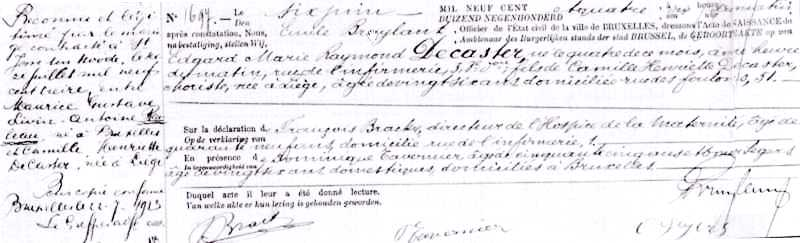 Reconnu et légi
timé par le maria
ge contracté à St
Josse ten Noode, le
juillet mil neuf
cent treize, entre
Maurice Gustave
Livin Antoine
né à Bruxelles
et Camille Henriette
Decaster, née à Liège
Pour copie conforme
Bruxelles le 22-7-1913
Le Greffier
N° 1694. Le Den six juin MIL NEUF CENT DUIZEND NEGENHONDERD quatre
après constatation, Nous, Emile Bruylant, Officier de l'État civil de la ville de BRUXELLES, dressons l'Acte de NAISSANCE de
na bestatiging, stellen Wij, Ambtenaar des Burgerlijken stands der stad BRUSSEL, de GEBOORTEAKTE op van
Edgard Marie Raymond Decaster, né le quatre de ce mois, à une heure
du matin, rue de l'infirmerie, fils de Camille Henriette Decaster,
choriste, née à Liège, âgée de vingt six ans domiciliée rue des foulons, 51.
Sur la déclaration de François Bracke, directeur de l'Hospice de la Maternité, âgé de
Op de verklaring van
quarante neuf ans, domicilié rue de l'infirmerie, 1.
En présence de Dominique Tavernier âgé de cinquante cinq ans
In tegenwoordigheid van
âgé de vingt six ans domestiques, domiciliés à Bruxelles.
Duquel acte il leur a été donné lecture.
Van welke akte er hun lezing is gehouden geworden.
Tavernier